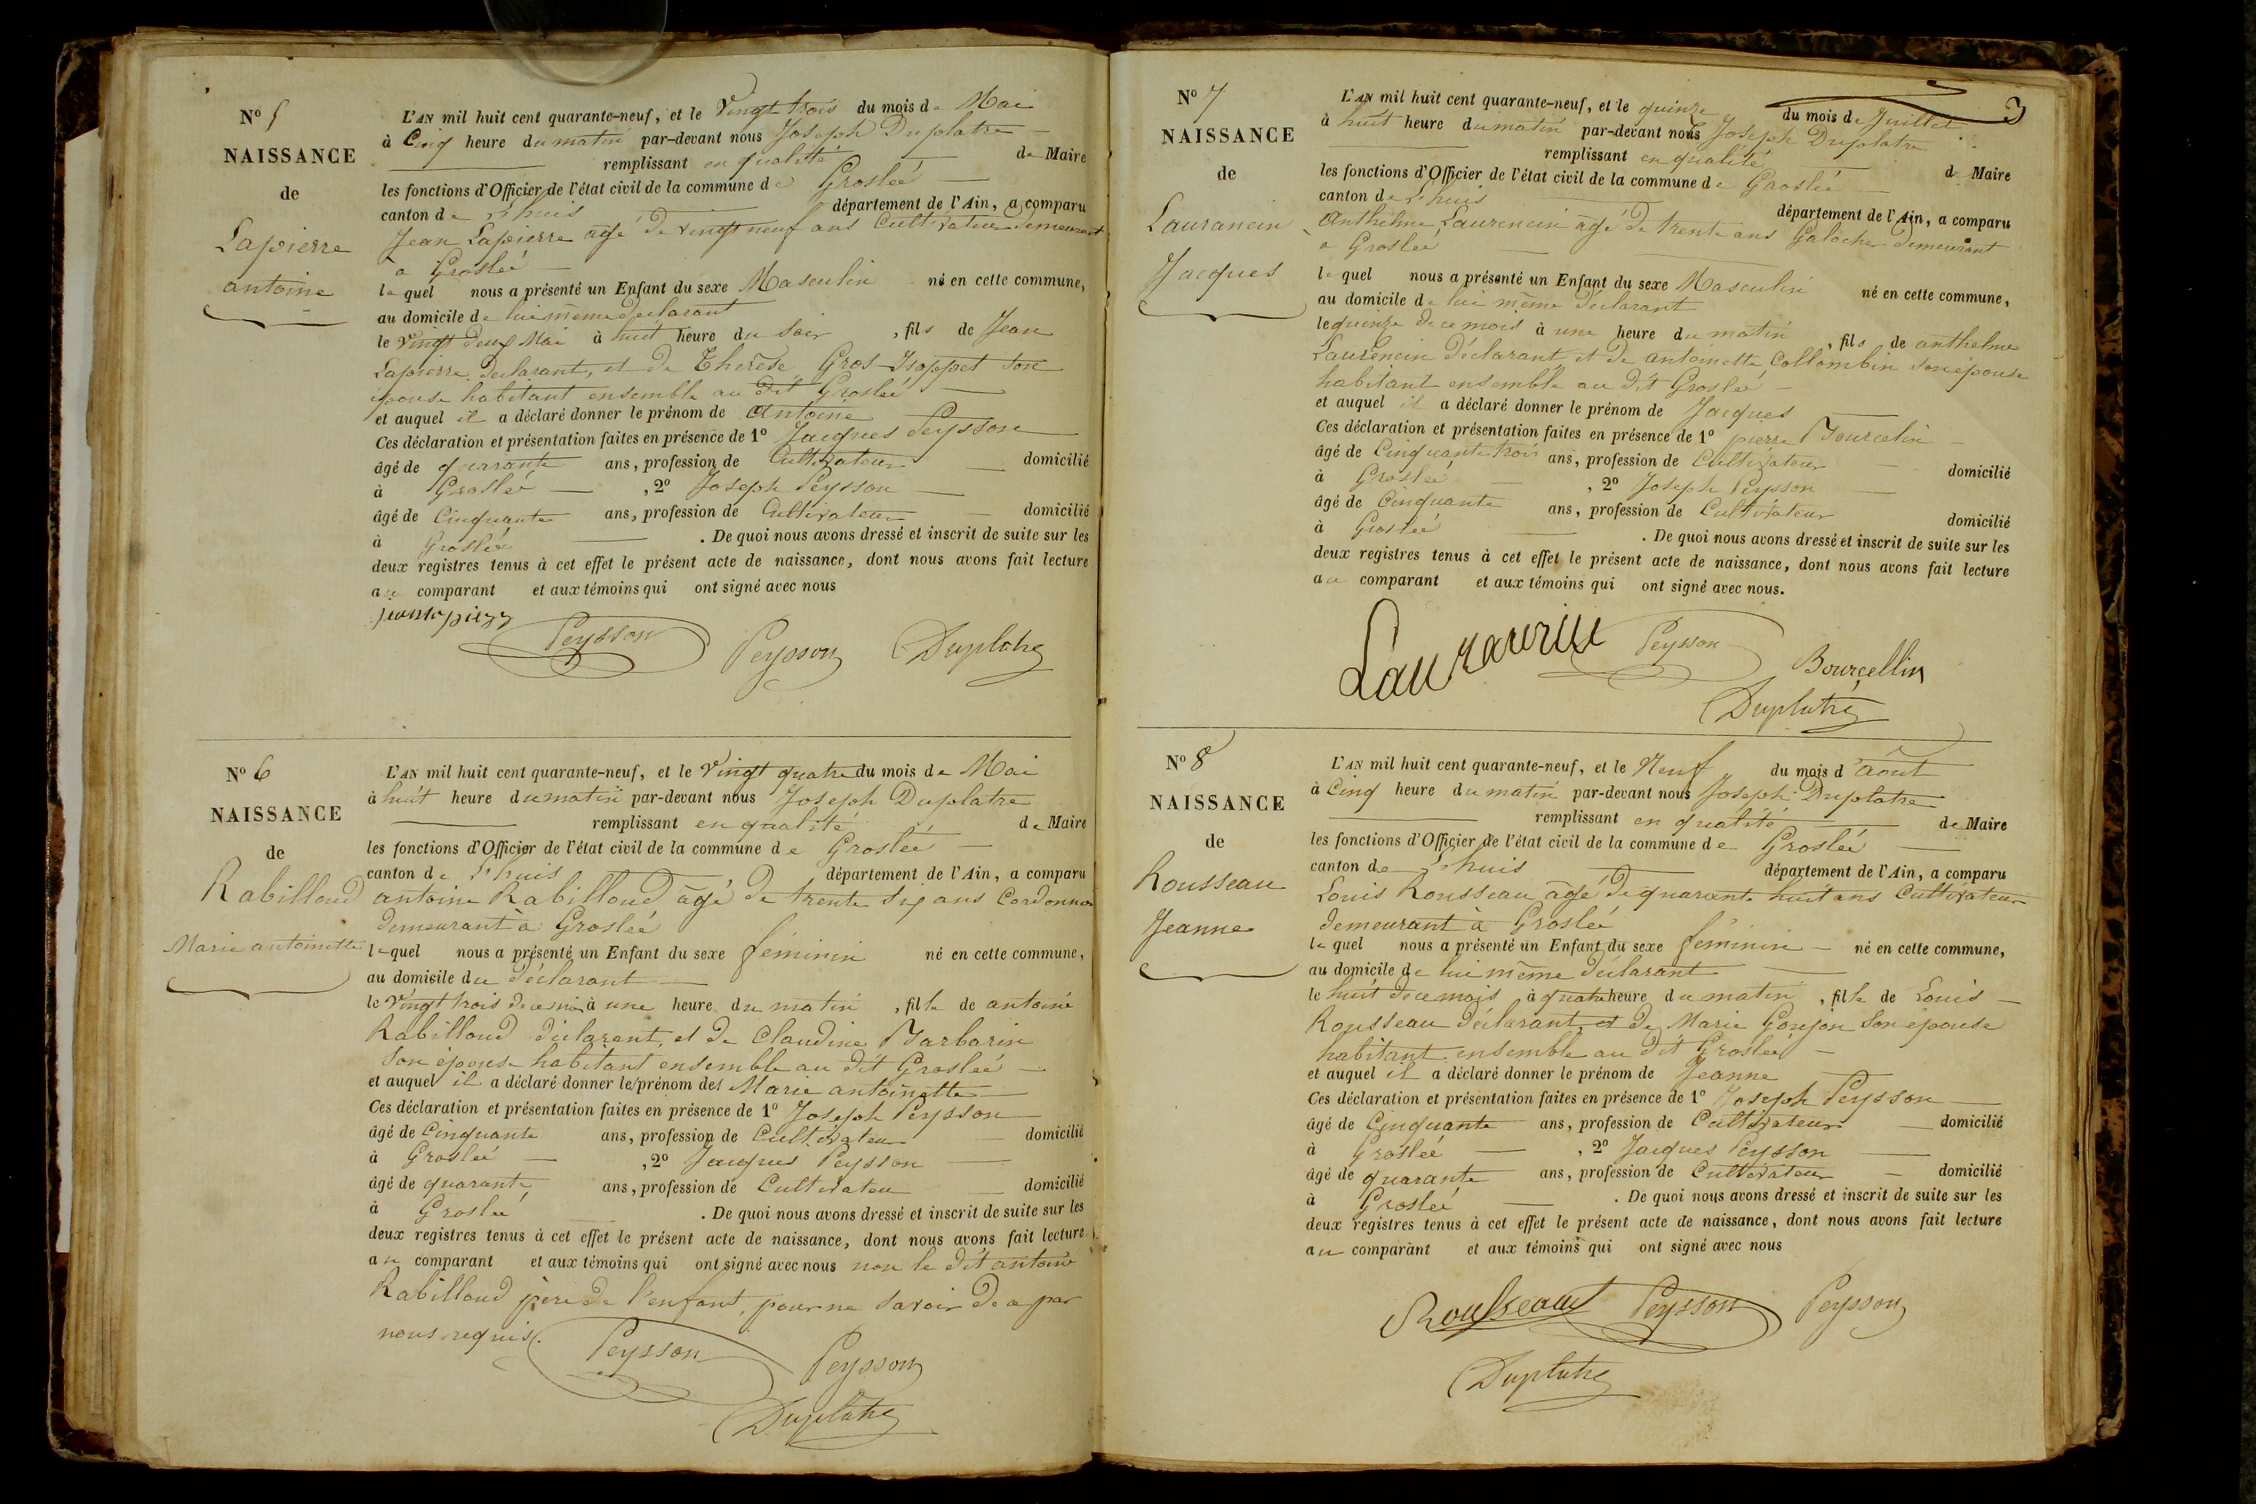 N° 5
NAISSANCE
de
Lapierre
antoine
L'AN mil huit cent quarante-neuf, et le Vingt trois du mois de Mai
à Cinq heure du matin par-devant nous Joseph Duplatre
remplissant en qualité de Maire
les fonctions d'Officier de l'état civil de la commune de Groslée
canton de L'huis département de l'Ain, a comparu
Jean Lapierre agé de vingt neuf ans Cultivateur demeurant
a Groslée
lequel nous a présenté un Enfant du sexe Masculin né en cette commune,
au domicile de lui même déclarant
le Vingt deux Mai à huit heure du Soir, fils de Jean
Lapierre declarant, et de Thérèse Gros-Isoppet son
épouse habitant ensemble au dit Groslée
et auquel il a déclaré donner le prénom de Antoine
Ces déclaration et présentation faites en présence de 1° Jacques Peysson
âgé de quarante ans, profession de Cultivateur domicilié
à Groslée, 2° Joseph Peysson
âgé de Cinquante ans, profession de Cultivateur domicilié
à Groslée. De quoi nous avons dressé et inscrit de suite sur les
deux registres tenus à cet effet le présent acte de naissance, dont nous avons fait lecture
au comparant et aux témoins qui ont signé avec nous
Peysson Peysson Duplatre
N° 6
NAISSANCE
de
Rabilloud
Marie antoinette
L'AN mil huit cent quarante-neuf, et le Vingt quatre du mois de Mai
à huit heure du matin par-devant nous Joseph Duplatre
remplissant en qualité de Maire
les fonctions d'Officier de l'état civil de la commune de Groslée
canton de L'huis département de l'Ain, a comparu
antoine Rabilloud âgé de trente six ans Cordonnier
demeurant à Groslée
lequel nous a présenté un Enfant du sexe féminin né en cette commune,
au domicile du déclarant
le Vingt trois de ce mois à une heure du matin, fille de antoine
Rabilloud déclarant, et de Claudine Barbarin
son épouse habitant ensemble au dit Groslée
et auquel il a déclaré donner le prénom des Marie antoinette
Ces déclaration et présentation faites en présence de 1° Joseph Peysson
âgé de Cinquante ans, profession de Cultivateur domicilié
à Groslée, 2° Jacques Peysson
âgé de quarante ans, profession de Cultivateu domicilié
à Groslée. De quoi nous avons dressé et inscrit de suite sur les
deux registres tenus à cet effet le présent acte de naissance, dont nous avons fait lecture
au comparant et aux témoins qui ont signé avec nous non le dit antoine
Rabilloud père de l'enfant, pour ne savoir de a par
nous requis.
Peysson Peysson
Duplatre
3
N° 7
NAISSANCE
de
Laurancin
Jacques
L'AN mil huit cent quarante-neuf, et le quinze du mois de Juillet
à huit heure du matin par-devant nous Joseph Duplatre
remplissant en qualité de Maire
les fonctions d'Officier de l'état civil de la commune de Groslée
canton de L'huis département de l'Ain, a comparu
Anthelme Laurencin âgé de trente ans Galocher demeurant
a Groslée
lequel nous a présenté un Enfant du sexe Masculin né en cette commune,
au domicile de lui même déclarant
le quinze de ce mois à une heure du matin, fils de anthelme
Laurencin déclarant et de antoinette Collombin son épouse
habitant ensemble au dit Groslée
et auquel il a déclaré donner le prénom de Jacques
Ces déclaration et présentation faites en présence de 1° pierre Bourcelin
âgé de Cinquante trois ans, profession de Cultivateur domicilié
à Groslée, 2° Joseph Peysson
âgé de Cinquante ans, profession de Cultivateur domicilié
à Groslée. De quoi nous avons dressé et inscrit de suite sur les
deux registres tenus à cet effet le présent acte de naissance, dont nous avons fait lecture
au comparant et aux témoins qui ont signé avec nous.
Peysson Bourcellin
Duplatre
N° 8
NAISSANCE
de
Rousseau
Jeanne
L'AN mil huit cent quarante-neuf, et le Neuf du mois d'août
à Cinq heure du matin par-devant nous Joseph Duplatre
remplissant en qualité de Maire
les fonctions d'Officier de l'état civil de la commune de Groslée
canton de L'huis département de l'Ain, a comparu
Louis Rousseau âgé de quarante huit ans Cultivateur
demeurant à Groslée
lequel nous a présenté un Enfant du sexe féminin né en cette commune,
au domicile de lui même déclarant
le huit de ce mois à quatre heure du matin, fille de Louis
Rousseau déclarant, et de Marie Goujon son épouse
habitant ensemble au dit Groslée
et auquel il a déclaré donner le prénom de Jeanne
Ces déclaration et présentation faites en présence de 1° Joseph Peysson
âgé de Cinquante ans, profession de Cultivateur domicilié
à Groslée, 2° Jacques Peysson
âgé de quarante ans, profession de Cultivateur domicilié
à Groslée. De quoi nous avons dressé et inscrit de suite sur les
deux registres tenus à cet effet le présent acte de naissance, dont nous avons fait lecture
au comparant et aux témoins qui ont signé avec nous
Rousseau Peysson Peysson
Duplatre